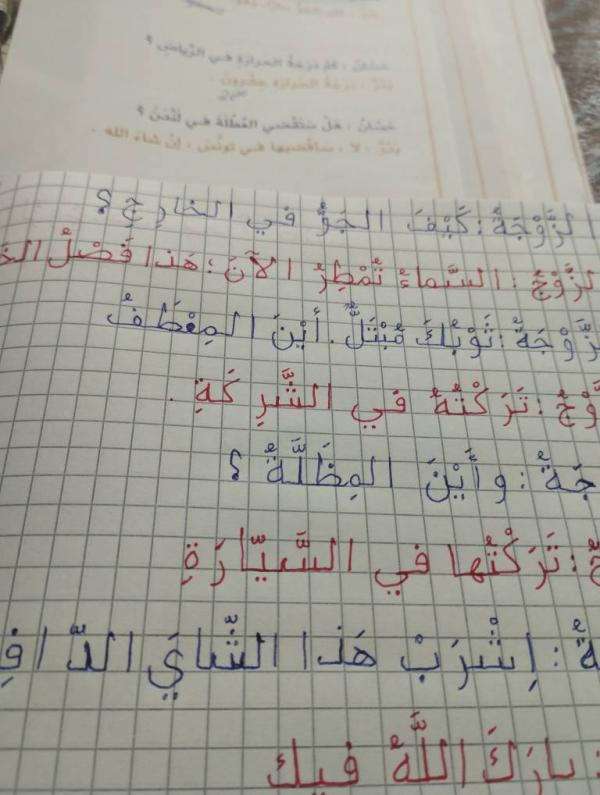 حَسَّانُ : كَمْ دَرَجَةُ الحَرَارَةِ فِي الرِّيَاضِ ؟
بَدْرٌ : دَرَجَةُ الحَرَارَةِ عِشْرُونَ .
حَسَّانُ : هَلْ سَتَقْضِي العُطْلَةَ فِي لَنْدَنَ ؟
بَدْرٌ : لا ، سَأَقْضِيهَا فِي تُونِسَ ، إِنْ شَاءَ الله .
لزَّوْجَةُ : كَيْفَ الجَوُّ فِي الخَارِجِ ؟
لزَّوْجُ : السَّمَاءُ تُمْطِرُ الآنَ ؛ هَذا فَصْلُ الخ
زَّوْجَةُ : ثَوْبُكَ مُبْتَلٌّ . أَيْنَ المِعْطَفُ
وْجُ : تَرَكْتُهُ فِي الشَّرِكَةِ .
جَةُ : وأَيْنَ المِظَلَّةُ ؟
جُ : تَرَكْتُها فِي السَّيّارَةِ
ةُ : إِشْرَبْ هَذا الشَّايَ الدّافِ
: بارَكَ اللَّهُ فيكِ